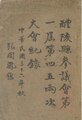 醴陵縣參議會第
一屆第四五兩次
大會紀錄
中華民國三十六年秋